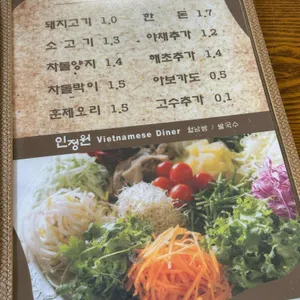 돼지고기 1.0 한 돈 1.7
소고기 1.3 야채추가 1.2
차돌양지 1.4 해초추가 1.4
차돌박이 1.5 아보카도 0.5
훈제오리 1.5 고수추가 0.1
인정원 Vietnamese Diner 월남쌈 / 쌀국수